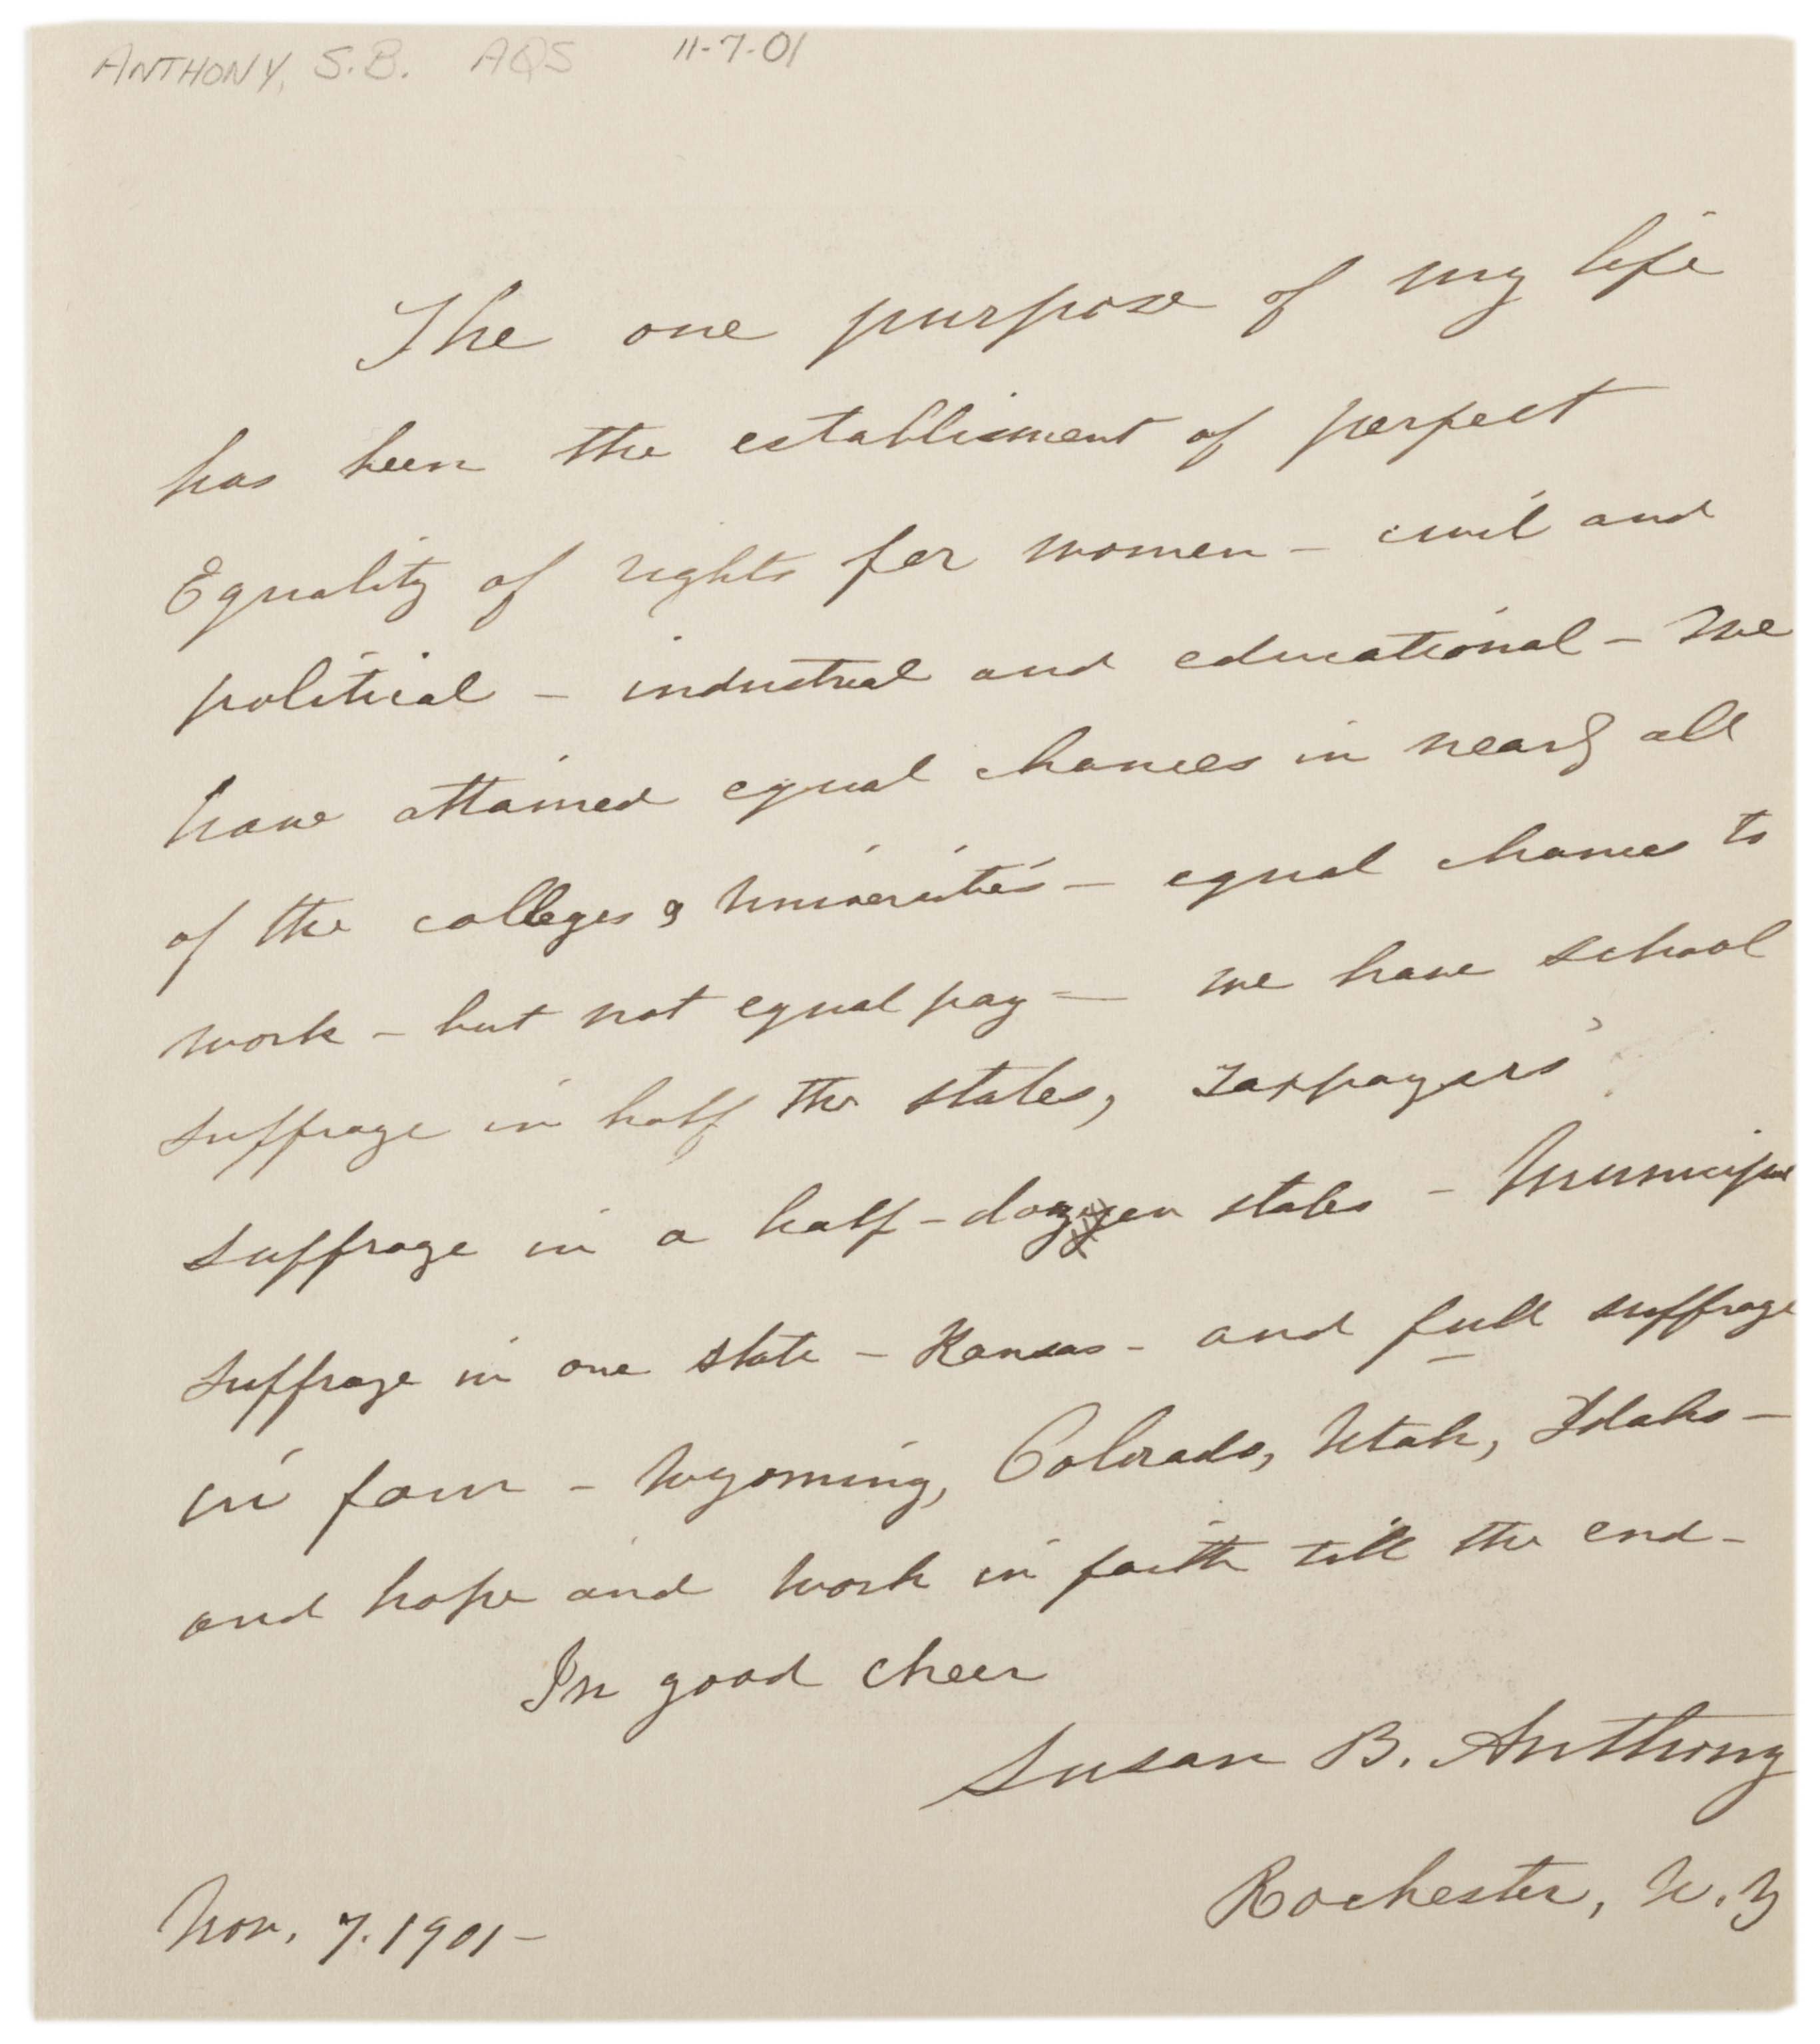 ANTHONY, S.B. AQS 11-7-01
The one purpose of my life
has been the establisment of perfect
Equality of rights for women - civil and
political - industrial and educational - We
have attained equal chances in nearly all
of the colleges & Universities - equal chances to
work - but not equal pay - we have school
suffrage in half the states, Taxpayers'
suffrage in a half-dozen states - Municipal
suffrage in one state - Kansas - and full suffrage
in four - Wyoming, Colorado, Utah, Idaho -
and hope and work in faith till the end -
In good cheer
Susan B. Anthony
Rochester, N.Y
Nov. 7. 1901 -